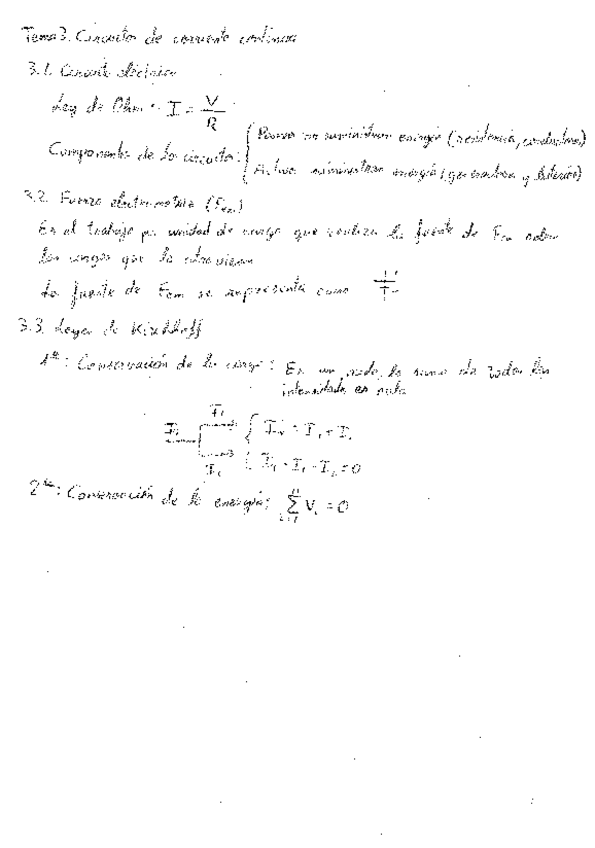 Tema 3. Circuitos de corriente continua
3.1. Circuito eléctrico
Ley de Ohm: I = V/R
Componentes de los circuitos: { Pasivos: no suministran energía (resistencia, conductores)
Activos: suministran energía (generadores y baterías)
3.2. Fuerza electromotriz (Fem)
Es el trabajo por unidad de carga que realiza la fuente de Fem sobre
las cargas que la atraviesan
La fuente de Fem se representa como
3.3. Leyes de Kirchhoff
1ª: Conservación de la carga: En un nodo, la suma de todas las
intensidades es nula
2ª: Conservación de la energía: Σ Vi = 0